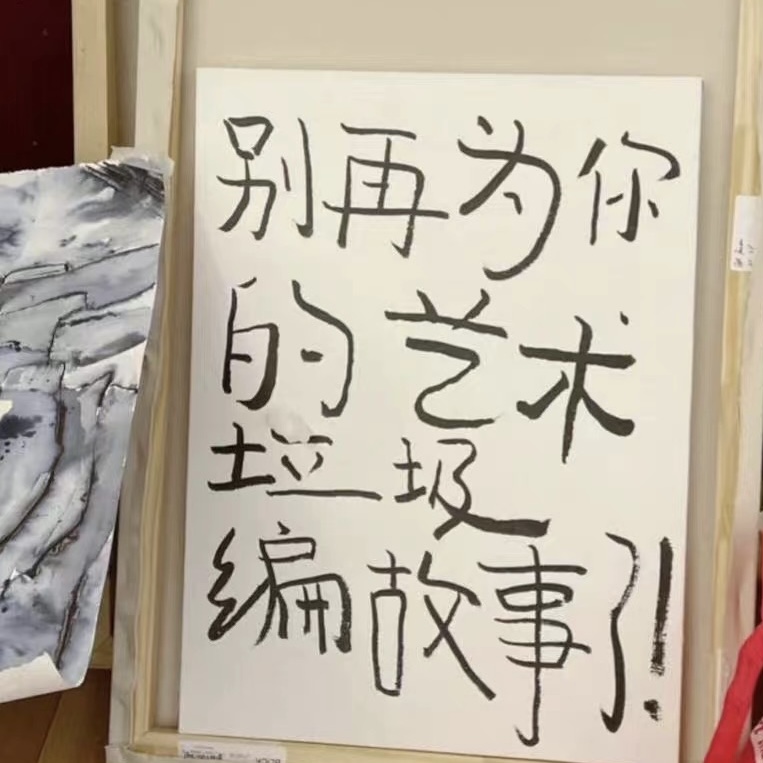 别再为你
的艺术
垃圾
编故事了!